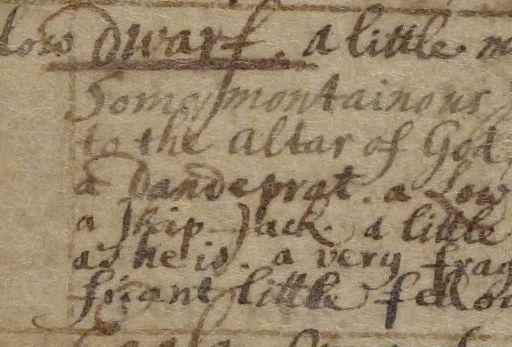 low Dwarf. a little m
Some mountainous
to the altar of God
a Dandeprat. a Low
a skip-Jack. a little
as he is. a very frag
little fellow